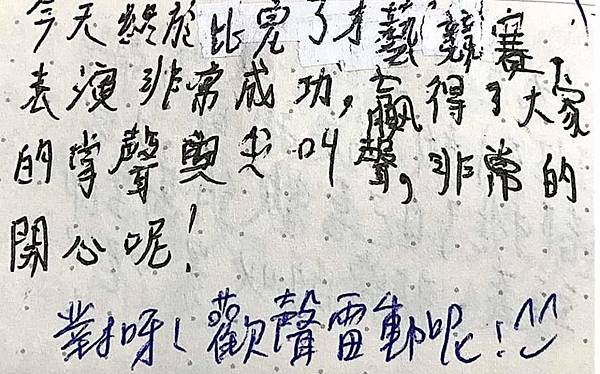 今天終於比完了才藝競賽
表演非常成功，贏得了大家
的掌聲與尖叫聲，非常的
開心呢！
對呀！歡聲雷動呢！^^